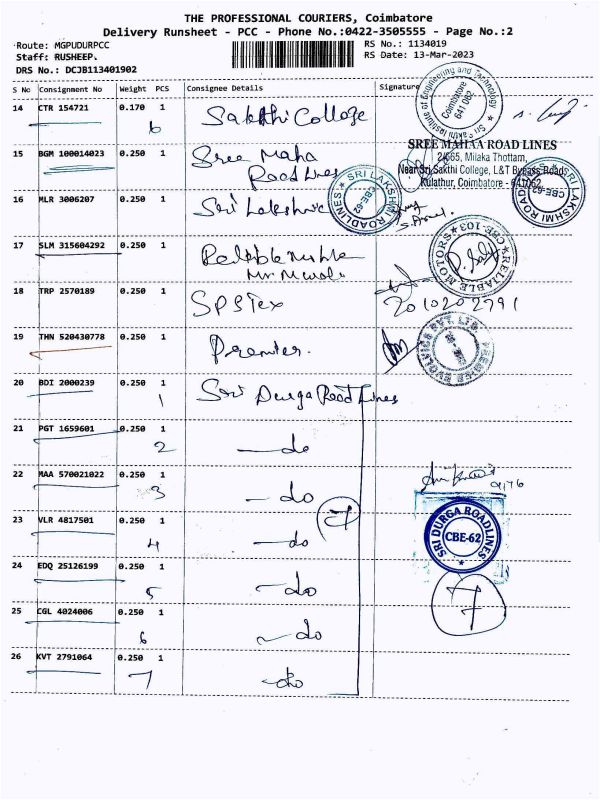 THE PROFESSIONAL COURIERS, Coimbatore
Delivery Runsheet - PCC - Phone No.:0422-3505555 - Page No.:2
Route: MGPUDURPCC RS No.: 1134019
Staff: RUSHEEP. RS Date: 13-Mar-2023
DRS No.: DCJB113401902
S No Consignment No Weight PCS Consignee Details Signature
14 CTR 154721 0.170 1 Sakthi College
6
Sri Sakthi Institute of Engineering and Technology
Coimbatore
641 062
15 BGM 100014023 0.250 1 Sree Maha
Road Lines
SREE MAHAA ROAD LINES
2/665, Milaka Thottam,
Near Sri Sakthi College, L&T Bypass Road,
Kulathur, Coimbatore - 641062.
16 MLR 3006207 0.250 1 Sri Lakshmi
SRI LAKSHMI ROADLINES
CBE-62
SRI LAKSHMI ROADLINES
CBE-62
17 SLM 315604292 0.250 1
RELIABLE MOTORS CBE-103
18 TRP 2570189 0.250 1 SPS Tex
2010202791
19 THN 520430778 0.250 1 Premier.
20 BDI 2000239 0.250 1 Sri Durga Road Lines
1
21 PGT 1659601 0.250 1 do
2
22 MAA 570021022 0.250 1 do
3
9176
23 VLR 4817501 0.250 1 do
4
7
SRI DURGA ROADLINES
CBE-62
24 EDQ 25126199 0.250 1 do
5
7
25 CGL 4024006 0.250 1 do
6
26 KVT 2791064 0.250 1 do
7